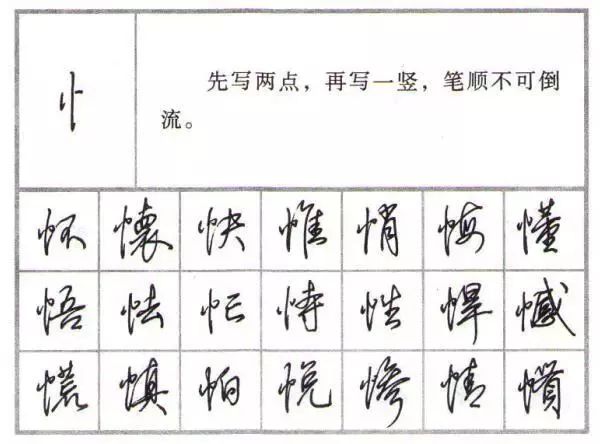 忄 先写两点，再写一竖，笔顺不可倒
流。
怀 懷 快 惟 悄 悔 懂
悟 怯 忙 恃 性 悍 憾
慌 慎 怕 悦 惨 情 愤